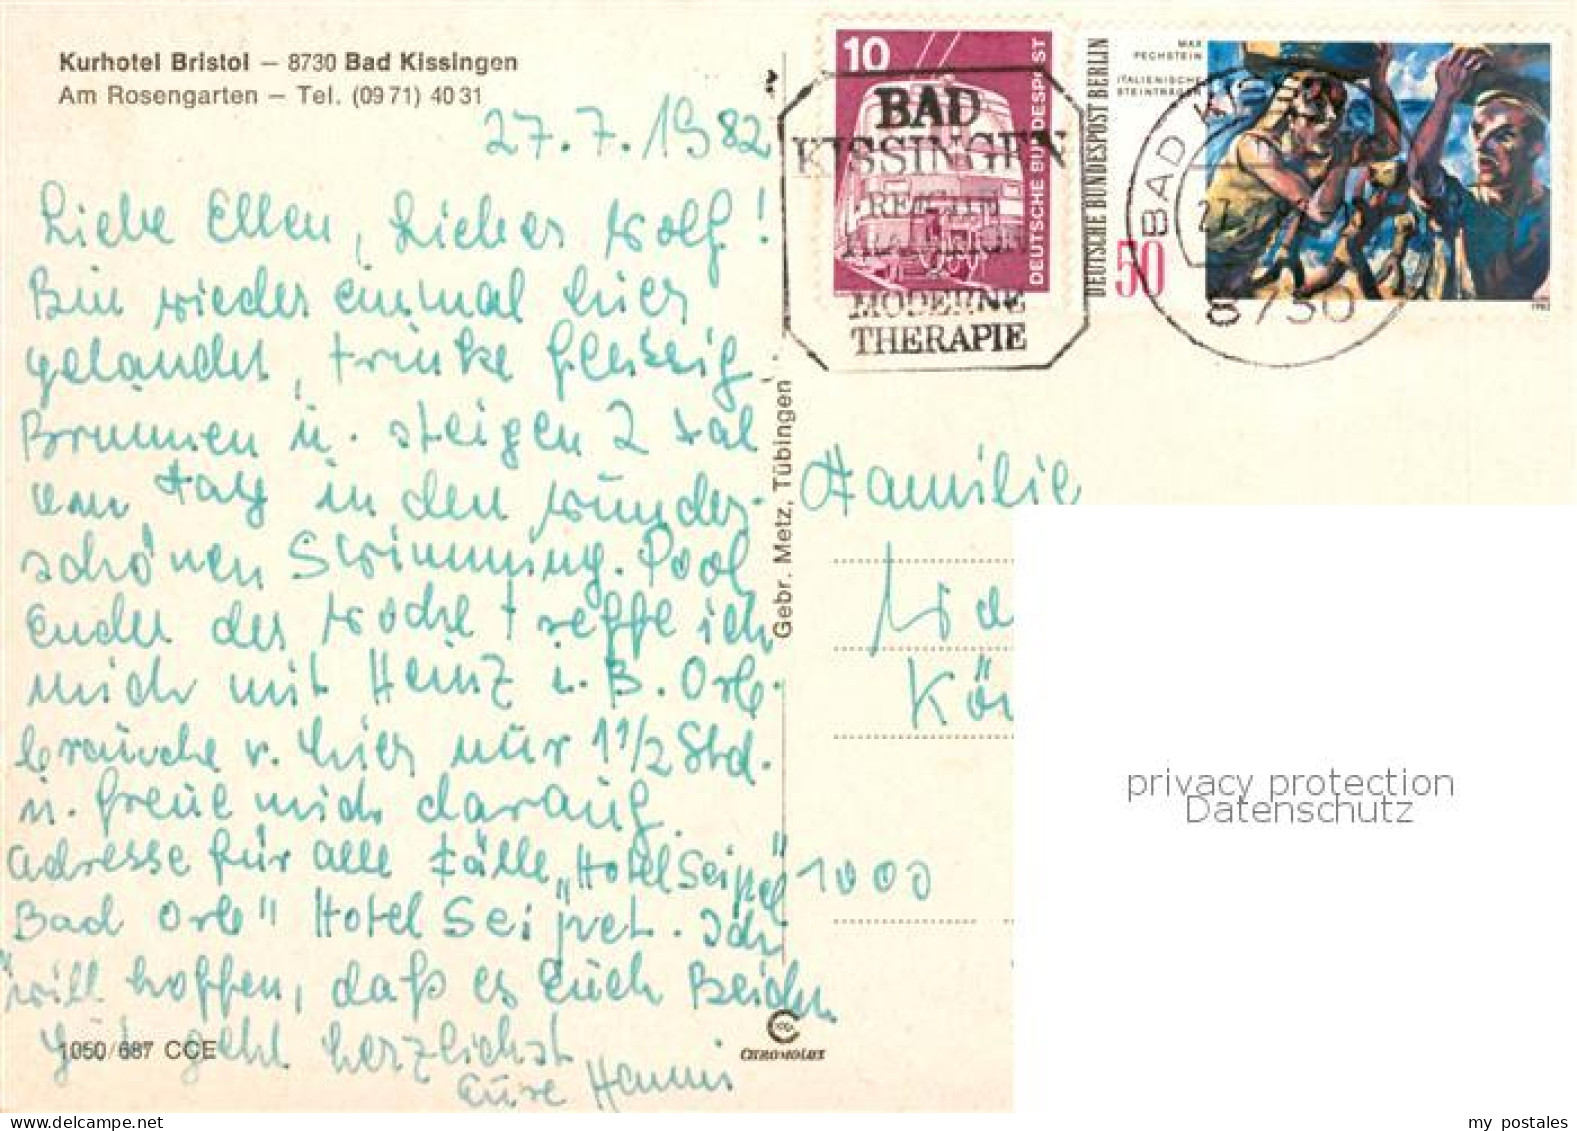 Kurhotel Bristol – 8730 Bad Kissingen
Am Rosengarten – Tel. (09 71) 40 31
27.7.1982
Liebe Ellen, Lieber Wolf!
Bin wieder einmal hier
gelandet, trinke fleißig
Brunnen u. steigen 2 Mal
am Tag in den wunder-
schönen Swimming-Pool
Ende der Woche treffe ich
mich mit Heinz i. B. Orb.
brauche v. hier nur 1 1/2 Std.
u. freue mich darauf.
Adresse für alle Fälle „Hotel Seipel
Bad Orb" Hotel Seipel. Ich
will hoffen, daß es Euch Beiden
gut geht herzlichst
Eure Hanni
1050/687 CCE
Gebr. Metz, Tübingen
CHROMOLUX
10
DEUTSCHE BUNDESPOST
BAD
KISSINGEN
MODERNE
THERAPIE
MAX
PECHSTEIN
ITALIENISCHE
STEINTRÄGER
DEUTSCHE BUNDESPOST BERLIN
50
1982
BAD KISSINGEN
8730
Familie
Kör
1000
privacy protection
Datenschutz
www.delcampe.net
my_postales